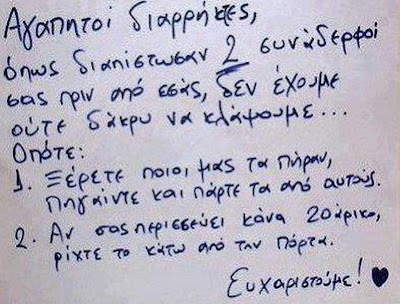 Αγαπητοί διαρρήκτες,
όπως διαπίστωσαν 2 συνάδερφοι
σας πριν από εσάς, δεν έχουμε
ούτε δάκρυ να κλάψουμε...
Οπότε:
1. Ξέρετε ποιοι μας τα πήραν,
πηγαίντε και πάρτε τα από αυτούς.
2. Αν σας περισσεύει κάνα 20άρικο,
ρίχτε το κάτω από την πόρτα.
Ευχαριστούμε! ♥